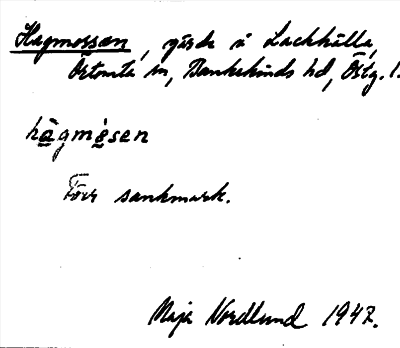 Hagmossen, gärde å Lackhälla,
Örtomta sn, Bankekinds hd, Östg. l.
hagmåsen
Förr sankmark.
Maja Nordlund 1947.